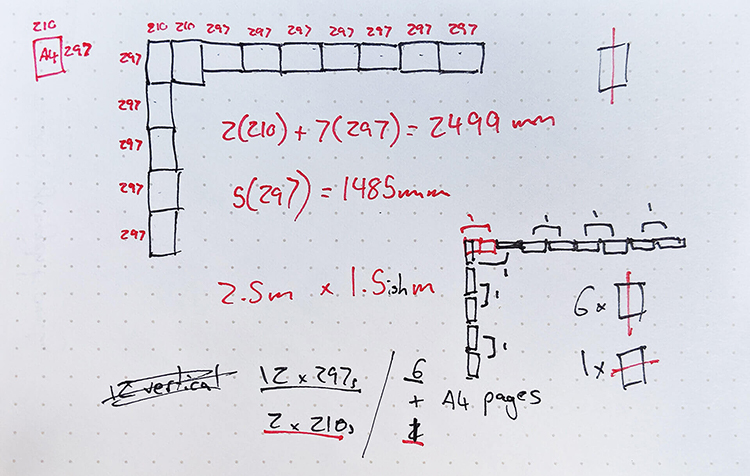 210
A4 297
210 210 297 297 297 297 297 297 297
297
297
297
297
297
2(210) + 7(297) = 2499 mm
5(297) = 1485mm
2.5m x 1.5ishm
1 1 1 1
1
1
1
6 x
1 x
12 vertical
12 x 297s / 6
+ A4 pages
2 x 210s 1